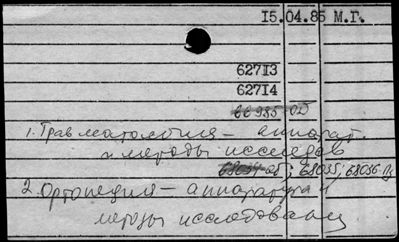 15.04.85 М.Г.
62713
62714
66985-ОД
1. Травматология - аппарат.
и методы исследов
68034-об; 68035; 68036-
2. Ортопедия - аппаратура и
методы исследован